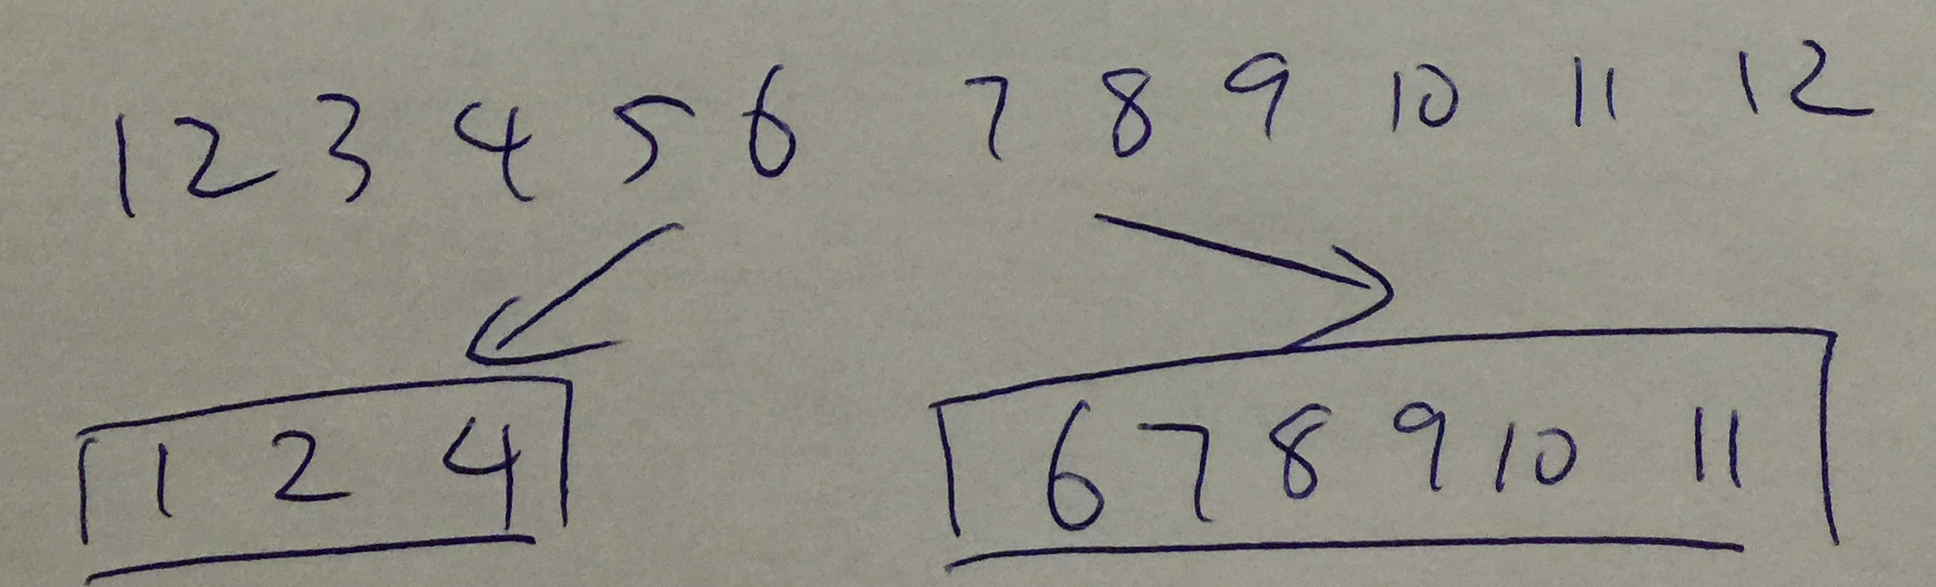 1 2 3 4 5 6 7 8 9 10 11 12
1 2 4 6 7 8 9 10 11